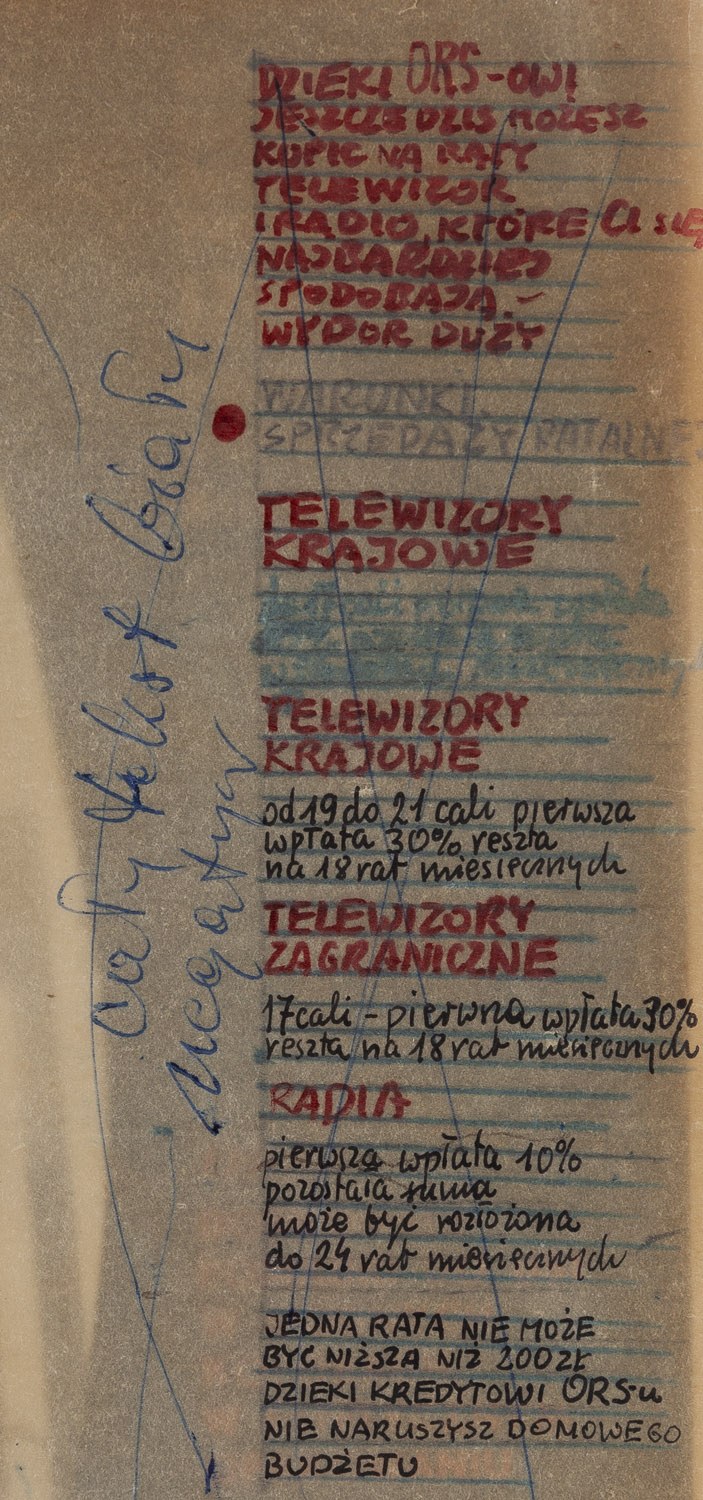 DZIEKI ORS-OWI
JESZCZE DZIS MOŻESZ
KUPIC NA RATY
TELEWIZOR
I RADIO, KTÓRE CI SIĘ
NAJBARDZIEJ
SPODOBAJĄ. –
WYBOR DUŻY
WARUNKI
SPRZEDAŻY RATALNEJ
TELEWIZORY
KRAJOWE
TELEWIZORY
KRAJOWE
od 19 do 21 cali pierwsza
wpłata 30% reszta
na 18 rat miesięcznych
TELEWIZORY
ZAGRANICZNE
17 cali – pierwsza wpłata 30%
reszta na 18 rat miesięcznych
RADIA
pierwsza wpłata 10%
pozostała suma
może być rozłożona
do 24 rat miesięcznych
JEDNA RATA NIE MOŻE
BYĆ NIŻSZA NIŻ 200 ZŁ
DZIEKI KREDYTOWI ORS-u
NIE NARUSZYSZ DOMOWEGO
BUDŻETU
Cały tekst biały
negatyw